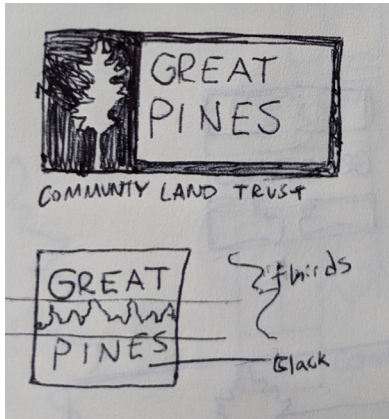 GREAT
PINES
COMMUNTY LAND TRUST
GREAT
PINES
thirds
Black